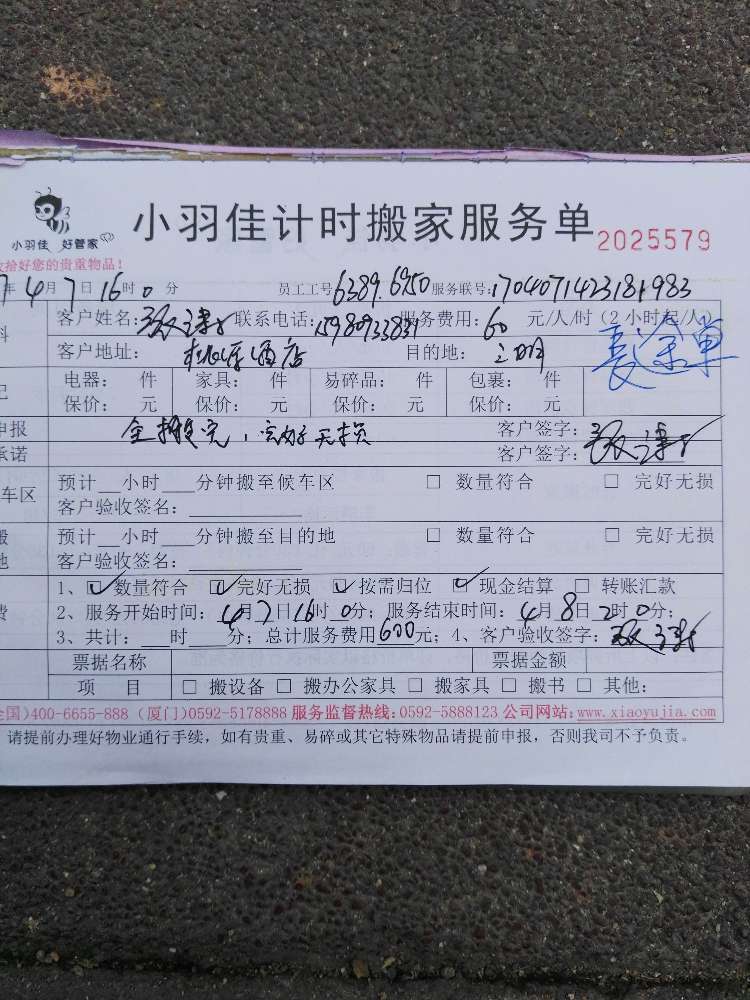 小羽佳计时搬家服务单 2025579
小羽佳 好管家
收拾好您的贵重物品!
7年4月7日16时0分 员工工号6389.6950服务联号:1704071423181983
客户姓名: 联系电话:15980933831服务费用:60元/人/时(2小时起/人)
客户地址: 酒店 目的地:三明 长途单
电器: 件 家具: 件 易碎品: 件 包裹: 件
保价: 元 保价: 元 保价: 元 保价: 元
申报 全部搬完,完好无损 客户签字:
承诺 客户签字:
车区 预计__小时___分钟搬至候车区 □ 数量符合 □ 完好无损
客户验收签名:
预计__小时___分钟搬至目的地 □ 数量符合 □ 完好无损
地 客户验收签名:
费 1、☑数量符合 ☑完好无损 ☑按需归位 ☑现金结算 □ 转账汇款
2、服务开始时间:4月7日16时0分;服务结束时间:4月8日2时0分;
3、共计: 时 分;总计服务费用600元;4、客户验收签字:
票据名称 票据金额
项 目 □ 搬设备 □ 搬办公家具 □ 搬家具 □ 搬书 □ 其他:
全国)400-6655-888 (厦门)0592-5178888 服务监督热线:0592-5888123 公司网站:www.xiaoyujia.com
请提前办理好物业通行手续,如有贵重、易碎或其它特殊物品请提前申报,否则我司不予负责。